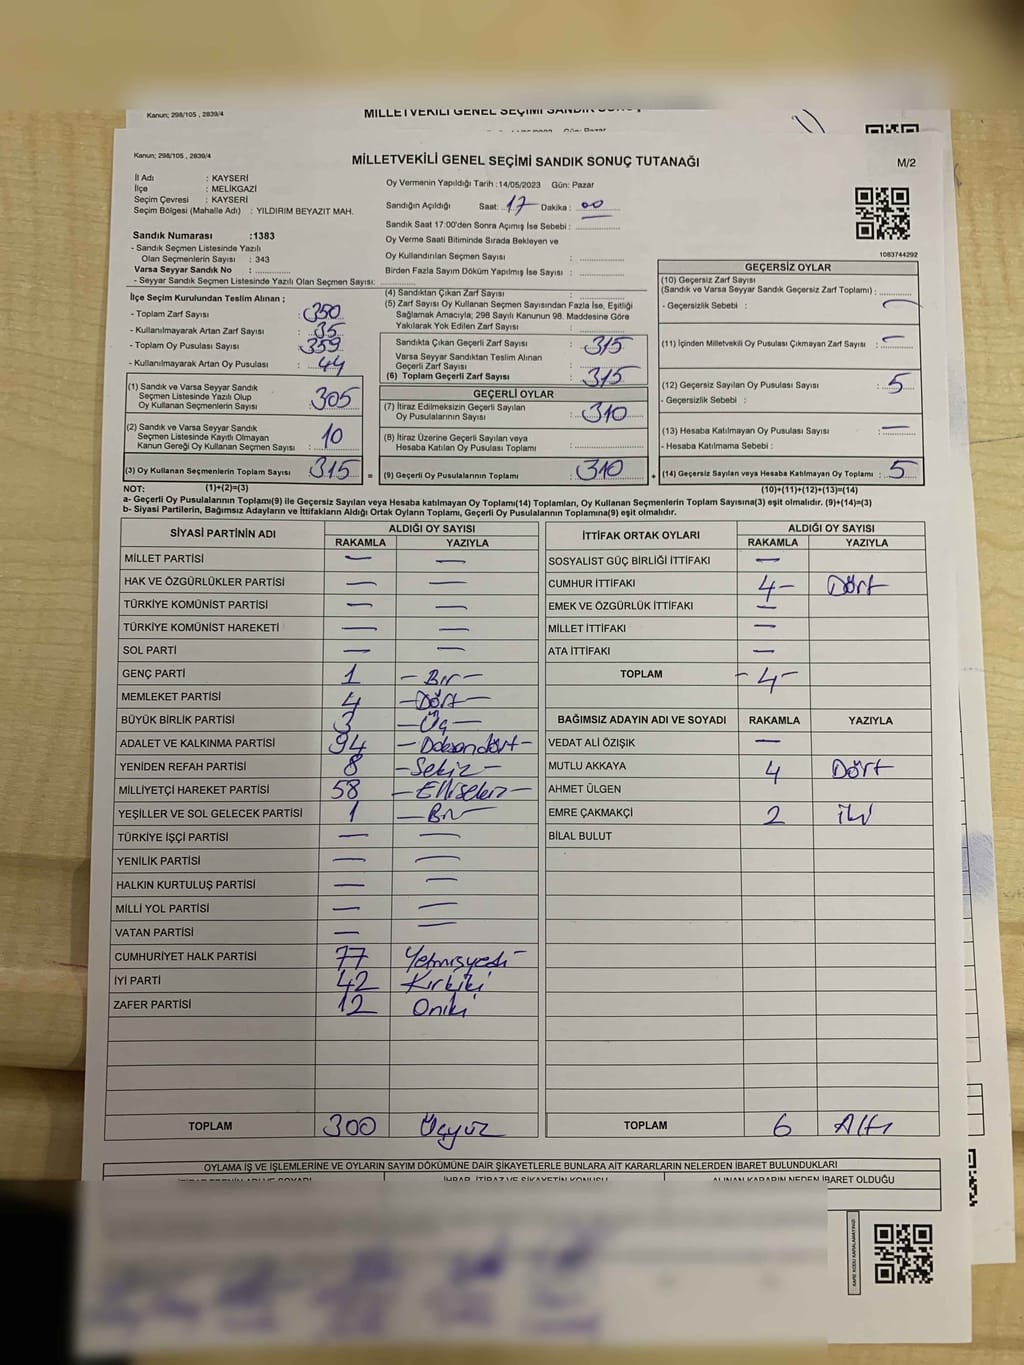 Kanun; 298/105 , 2839/4
MİLLETVEKİLİ GENEL SEÇİMİ SANDIK
Kanun; 298/105 , 2839/4
MİLLETVEKİLİ GENEL SEÇİMİ SANDIK SONUÇ TUTANAĞI
M/2
İl Adı : KAYSERİ
İlçe : MELİKGAZİ
Seçim Çevresi : KAYSERİ
Seçim Bölgesi (Mahalle Adı) : YILDIRIM BEYAZIT MAH.
Oy Vermenin Yapıldığı Tarih :14/05/2023 Gün: Pazar
Sandığın Açıldığı Saat: 17 Dakika : 00
Sandık Saat 17:00'den Sonra Açımış İse Sebebi :
Oy Verme Saati Bitiminde Sırada Bekleyen ve
Oy Kullandırılan Seçmen Sayısı :
Birden Fazla Sayım Döküm Yapılmış İse Sayısı :
Sandık Numarası :1383
- Sandık Seçmen Listesinde Yazılı
Olan Seçmenlerin Sayısı : 343
Varsa Seyyar Sandık No :
- Seyyar Sandık Seçmen Listesinde Yazılı Olan Seçmen Sayısı:
1083744292
İlçe Seçim Kurulundan Teslim Alınan ;
- Toplam Zarf Sayısı : 350
- Kullanılmayarak Artan Zarf Sayısı : 35
- Toplam Oy Pusulası Sayısı : 359
- Kullanılmayarak Artan Oy Pusulası : 44
(1) Sandık ve Varsa Seyyar Sandık
Seçmen Listesinde Yazılı Olup
Oy Kullanan Seçmenlerin Sayısı : 305
(2) Sandık ve Varsa Seyyar Sandık
Seçmen Listesinde Kayıtlı Olmayan
Kanun Gereği Oy Kullanan Seçmen Sayısı : 10
(3) Oy Kullanan Seçmenlerin Toplam Sayısı : 315
(1)+(2)=(3)
(4) Sandıktan Çıkan Zarf Sayısı :
(5) Zarf Sayısı Oy Kullanan Seçmen Sayısından Fazla İse, Eşitliği
Sağlamak Amacıyla; 298 Sayılı Kanunun 98. Maddesine Göre
Yakılarak Yok Edilen Zarf Sayısı :
Sandıkta Çıkan Geçerli Zarf Sayısı : 315
Varsa Seyyar Sandıktan Teslim Alınan
Geçerli Zarf Sayısı :
(6) Toplam Geçerli Zarf Sayısı : 315
GEÇERLİ OYLAR
(7) İtiraz Edilmeksizin Geçerli Sayılan
Oy Pusulalarının Sayısı : 310
(8) İtiraz Üzerine Geçerli Sayılan veya
Hesaba Katılan Oy Pusulası Sayısı :
= (9) Geçerli Oy Pusulalarının Toplamı : 310
GEÇERSİZ OYLAR
(10) Geçersiz Zarf Sayısı
(Sandık ve Varsa Seyyar Sandık Geçersiz Zarf Toplamı) :
- Geçersizlik Sebebi : —
(11) İçinden Milletvekili Oy Pusulası Çıkmayan Zarf Sayısı : —
(12) Geçersiz Sayılan Oy Pusulası Sayısı : 5
- Geçersizlik Sebebi :
(13) Hesaba Katılmayan Oy Pusulası Sayısı : —
- Hesaba Katılmama Sebebi :
+ (14) Geçersiz Sayılan veya Hesaba Katılmayan Oy Toplamı : 5
(10)+(11)+(12)+(13)=(14)
NOT:
a- Geçerli Oy Pusulalarının Toplamı(9) ile Geçersiz Sayılan veya Hesaba katılmayan Oy Toplamı(14) Toplamları, Oy Kullanan Seçmenlerin Toplam Sayısına(3) eşit olmalıdır. (9)+(14)=(3)
b- Siyasi Partilerin, Bağımsız Adayların ve İttifakların Aldığı Ortak Oyların Toplamı, Geçerli Oy Pusulalarının Toplamına(9) eşit olmalıdır.
SİYASİ PARTİNİN ADI ALDIĞI OY SAYISI
RAKAMLA YAZIYLA
MİLLET PARTİSİ — —
HAK VE ÖZGÜRLÜKLER PARTİSİ — —
TÜRKİYE KOMÜNİST PARTİSİ — —
TÜRKİYE KOMÜNİST HAREKETİ — —
SOL PARTİ — —
GENÇ PARTİ 1 — Bir —
MEMLEKET PARTİSİ 4 — Dört —
BÜYÜK BİRLİK PARTİSİ 3 — Üç —
ADALET VE KALKINMA PARTİSİ 94 — Doksandört —
YENİDEN REFAH PARTİSİ 8 — Sekiz —
MİLLİYETÇİ HAREKET PARTİSİ 58 — Ellisekiz —
YEŞİLLER VE SOL GELECEK PARTİSİ 1 — Bir
TÜRKİYE İŞÇİ PARTİSİ — —
YENİLİK PARTİSİ — —
HALKIN KURTULUŞ PARTİSİ — —
MİLLİ YOL PARTİSİ — —
VATAN PARTİSİ — —
CUMHURİYET HALK PARTİSİ 77 Yetmişyedi —
İYİ PARTİ 42 Kırkiki
ZAFER PARTİSİ 12 Oniki
TOPLAM 300 Üçyüz
İTTİFAK ORTAK OYLARI ALDIĞI OY SAYISI
RAKAMLA YAZIYLA
SOSYALİST GÜÇ BİRLİĞİ İTTİFAKI —
CUMHUR İTTİFAKI 4 — Dört
EMEK VE ÖZGÜRLÜK İTTİFAKI —
MİLLET İTTİFAKI —
ATA İTTİFAKI —
TOPLAM - 4 -
BAĞIMSIZ ADAYIN ADI VE SOYADI RAKAMLA YAZIYLA
VEDAT ALİ ÖZIŞIK —
MUTLU AKKAYA 4 Dört
AHMET ÜLGEN
EMRE ÇAKMAKÇİ 2 iki
BİLAL BULUT
TOPLAM 6 Altı
OYLAMA İŞ VE İŞLEMLERİNE VE OYLARIN SAYIM DÖKÜMÜNE DAİR ŞİKAYETLERLE BUNLARA AİT KARARLARIN NELERDEN İBARET BULUNDUKLARI
ALINAN KARARIN NEDEN İBARET OLDUĞU